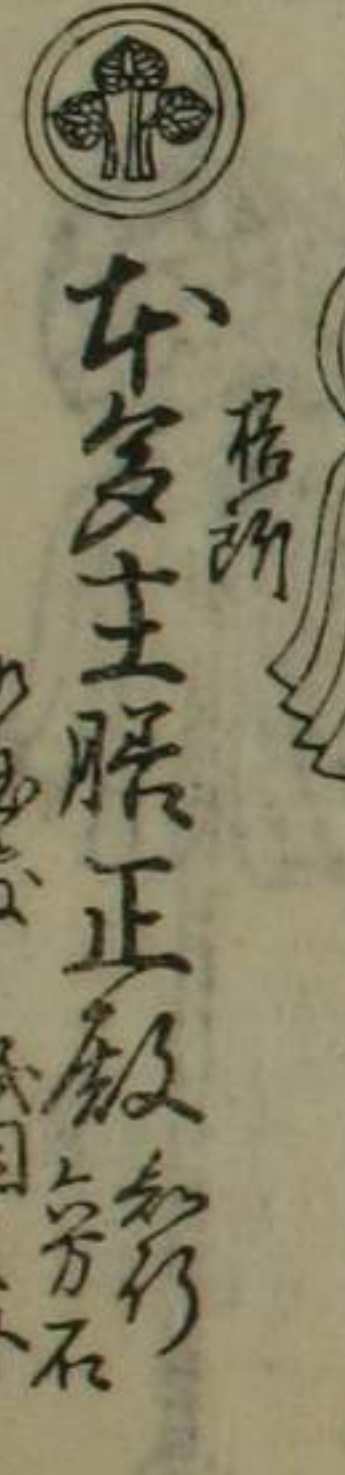 膳所
本多主膳正殿
知行
六万石